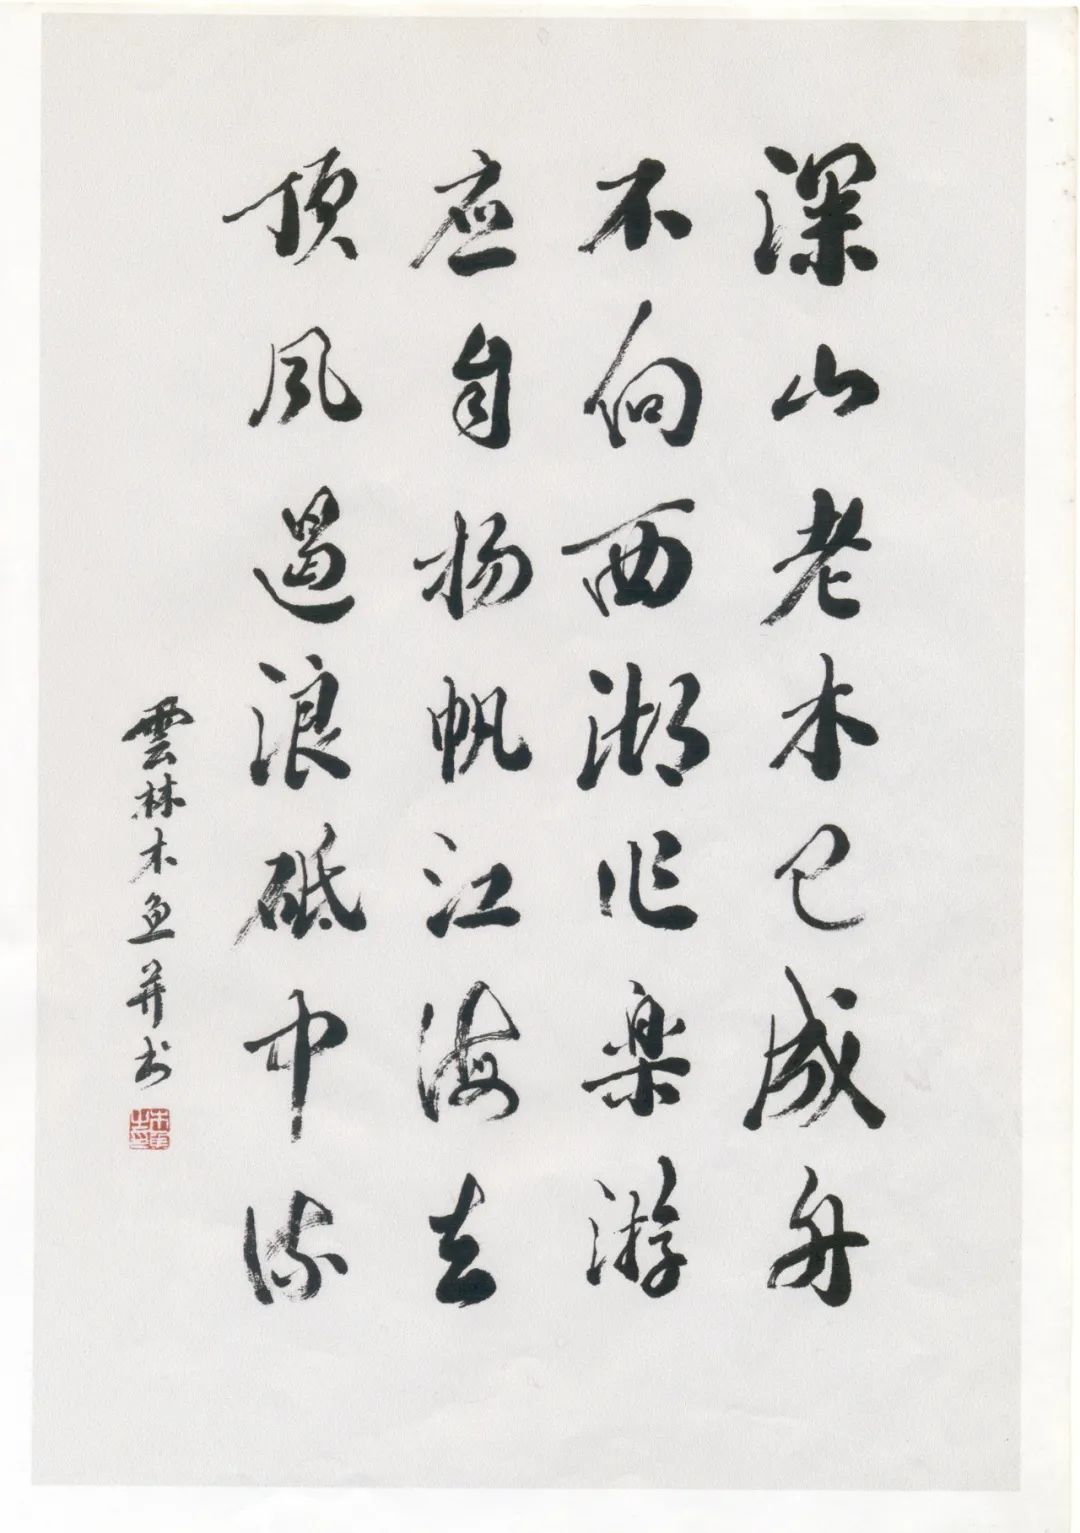 深山老木已成舟
不向西湖作楽游
应自扬帆江海去
顶风遏浪砥中流
雲林木鱼并书